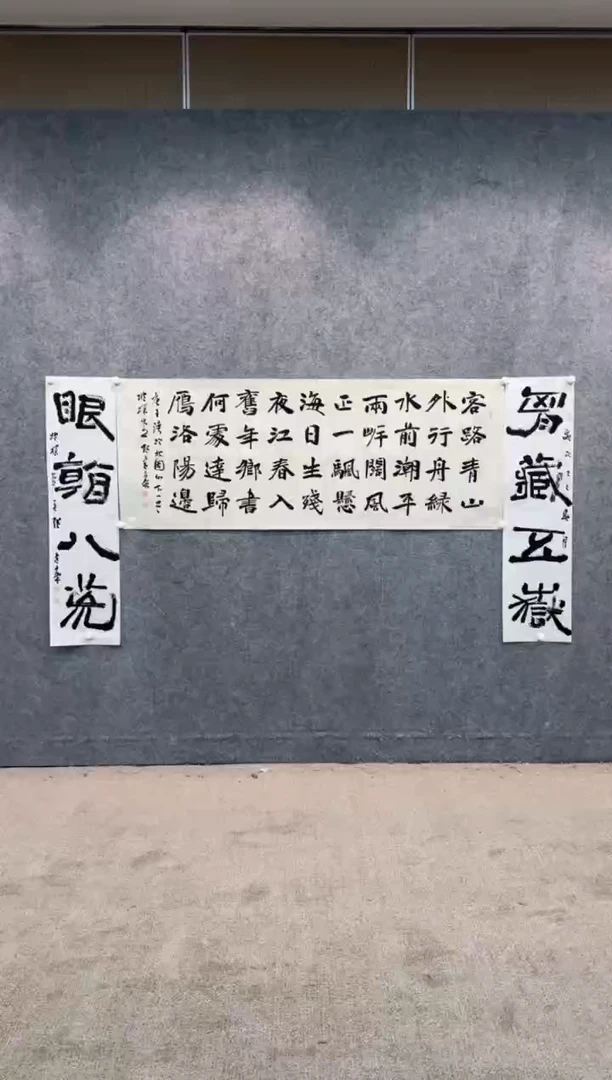 胷藏五嶽
客路青山
外行舟綠
水前潮平
兩岸闊風
正一颿懸
海日生殘
夜江春入
舊年鄉書
何處達歸
鴈洛陽邊
眼八荒